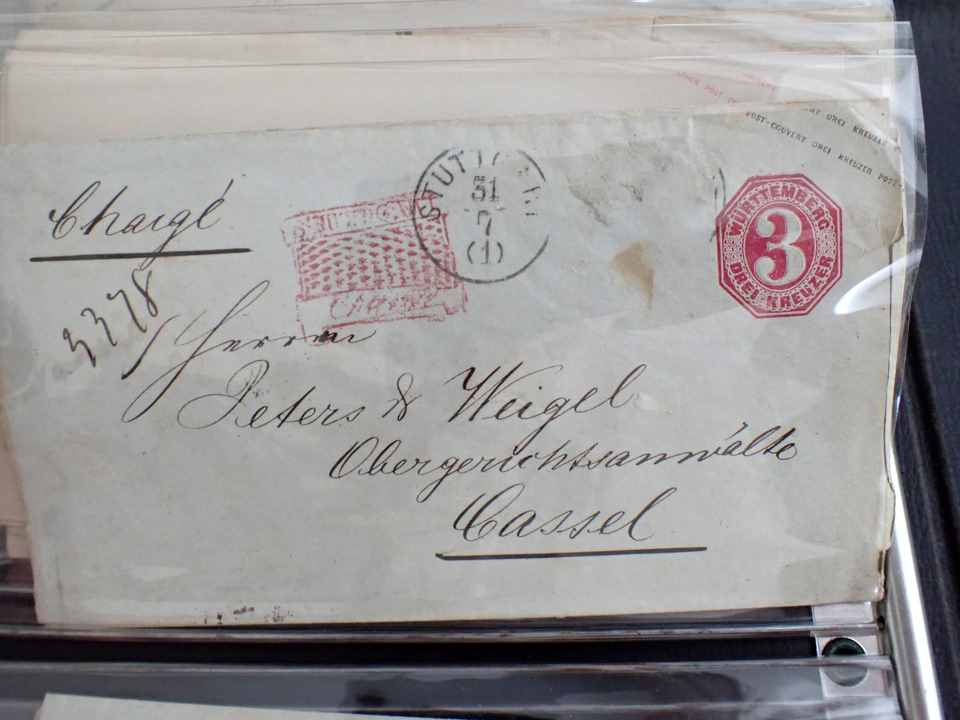 POST-COUVERT DREI KREUZER POST-
DREI KREUZER
Chargé
STUTTGART
31
7
(1)
WÜRTTEMBERG
3
DREI KREUZER
Chargé
3378
Herren
Peters & Weigel
Obergerichtsanwälte
Cassel